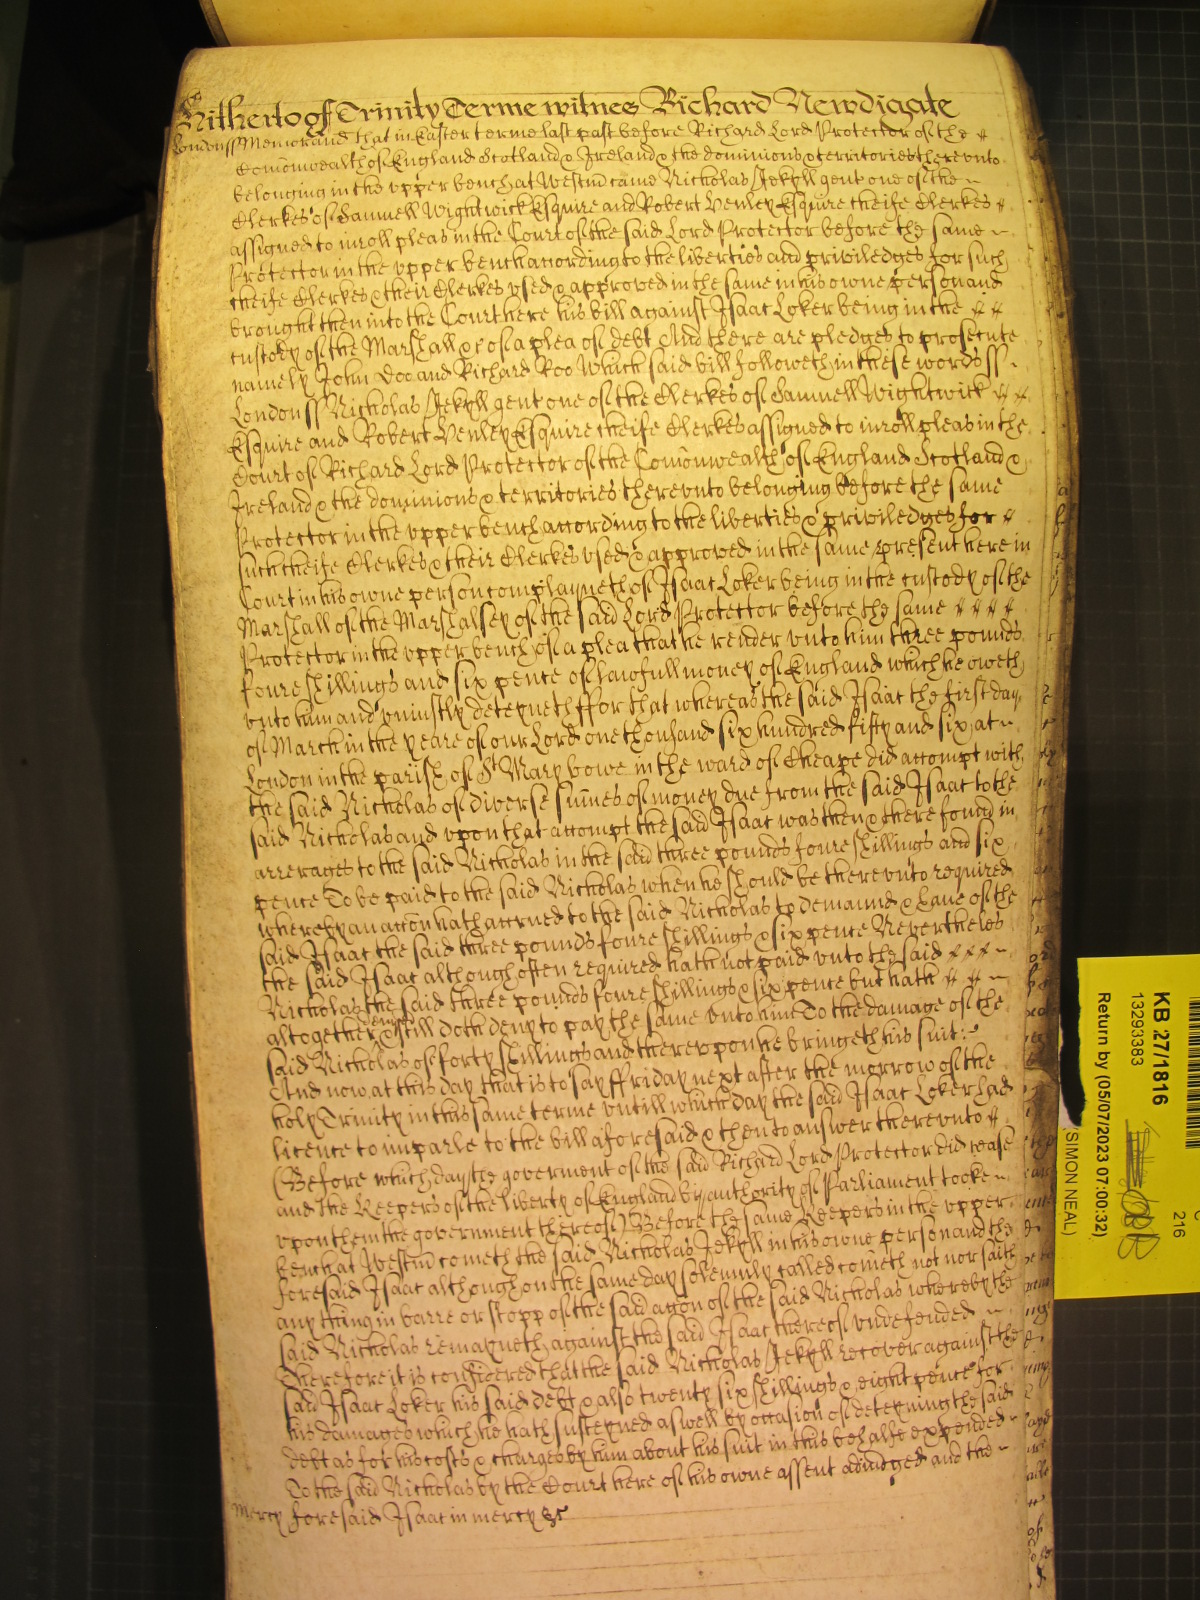 Hitherto of Trinity Terme witnes Richard Newdigate
London ss Memorand that in Easter terme last past before Richard Lord Protector of the
Comonwealth of England Scotland & Ireland & the dominions & territories therevnto
belonging in the vpper bench at Westm came Nicholas Jekyll gent one of the
Clerkes of Samuell Wightwick Esquire and Robert Henley Esquire cheife Clerkes
assigned to inroll pleas in the Court of the said Lord Protector before the same
Protector in the vpper bench according to the liberties and priviledges for such
cheife Clerkes & their Clerkes vsed & approved in the same in his owne person and
brought then into the Court here his bill against Isaac Loker being in the
custody of the Marshall &c of a plea of debt And there are pledges to prosecute
namely John Doo and Richard Roo Which said bill followeth in these words ss
London ss Nicholas Jekyll gent one of the Clerkes of Samuell Wightwick
Esquire and Robert Henley Esquire cheife Clerkes assigned to inroll pleas in the
Court of Richard Lord Protector of the Comonwealth of England Scotland &
Ireland & the dominions & territories therevnto belonging before the same
Protector in the vpper bench according to the liberties & priviledges for
such cheife Clerkes & their Clerkes vsed & approved in the same present here in
Court in his owne person complayneth of Isaac Loker being in the custody of the
Marshall of the Marshalsey of the said Lord Protector before the same
Protector in the vpper bench of a plea that he render vnto him three pounds
foure shillings and six pence of lawfull money of England which he oweth
vnto him and vniustly deteyneth ffor that whereas the said Isaac the first day
of March in the yeare of our Lord one thousand six hundred fifty and six at
London in the parish of St Mary bowe in the ward of Cheape did accompt with
the said Nicholas of diverse sumes of money due from the said Isaac to the
said Nicholas and vpon that accompt the said Isaac was then & there found in
arrerages to the said Nicholas in the said three pounds foure shillings and six
pence To be paid to the said Nicholas when he should be therevnto required
whereby an accon hath accrued to the said Nicholas to demaund & haue of the
said Isaac the said three pounds foure shillings & six pence Neverthelos
the said Isaac although often required hath not paid vnto the said
Nicholas the said three pounds foure shillings & six pence but hath
altogether denyed & still doth deny to pay the same vnto him To the damage of the
said Nicholas of forty shillings and therevpon he bringeth his suit
And now at this day that is to say ffriday next after the morrow of the
holy Trinity in this same terme vntill which day the said Isaac Loker had
licence to imparle to the bill aforesaid & then to answer therevnto
(Before which day the goverment of the said Richard Lord Protector did cease
and the Keepers of the liberty of England by authority of Parliament tooke
vpon them the government thereof) Before the same Keepers in the vpper
bench at Westm cometh the said Nicholas Jekyll in his owne person and the
foresaid Isaac although on the same day solemnly called cometh not nor saith
any thing in barre or stopp of the said accon of the said Nicholas whereby the
said Nicholas remayneth against the said Isaac thereof vndefended
Therefore it is considered that the said Nicholas Jekyll recover against the
said Isaac Loker his said debt & also twenty six shillings & eight pence for
his damages which he hath susteyned aswell by occasion of deteyning the said
debt as for his costs & charges by him about his suit in this behalfe expended
To the said Nicholas by the Court here of his owne assent adiudged and the
Mercy foresaid Isaac in mercy &c
KB 27/1816
13293383
Return by (05/07/2023 07:00:32)
(SIMON NEAL)
216